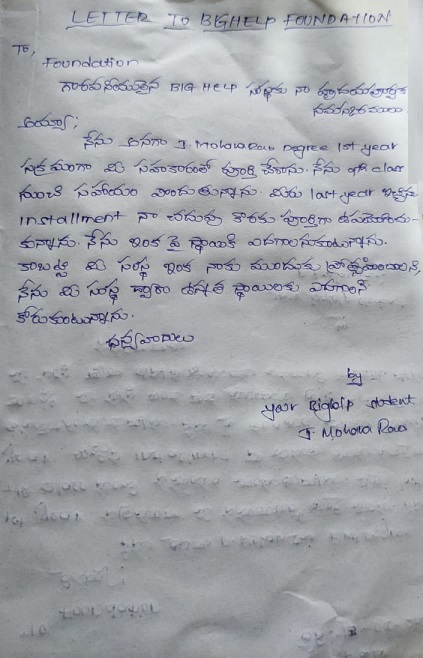 LETTER TO BIGHELP FOUNDATION
To,
Foundation
గౌరవనీయులైన BIG HELP సంస్థకు నా హృదయపూర్వక
నమస్కారములు
అయ్యా;
నేను అనగా J. Mohana Rao Degree 1st year
సక్రమంగా మీ సహకారంతో పూర్తి చేశాను. నేను class
నుంచి సహాయం పొందుతున్నాను. మీరు last year ఇచ్చిన
Installment నా చదువు కొరకు పూర్తిగా ఉపయోగించు-
కున్నాను. నేను ఇంకా పై స్థాయికి ఎదగాలనుకుంటున్నాను.
కాబట్టి మీ సంస్థ ఇంకా నాకు ముందుకు ప్రోత్సహించాలని,
నేను మీ సంస్థ ద్వారా ఉన్నత స్థాయిలకు ఎదగాలని
కోరుకుంటున్నాను.
ధన్యవాదాలు
by
your Bighelp student
J Mohana Rao